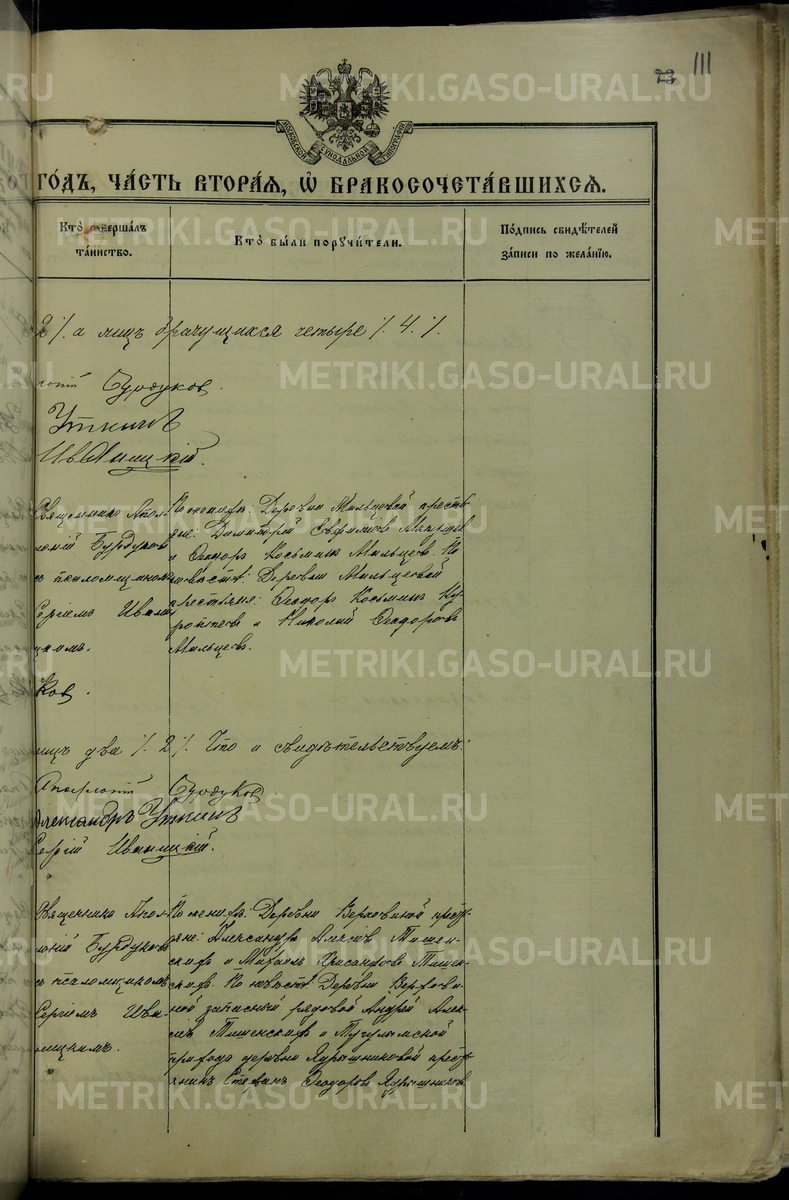 73 111
МОСКОВСКОЙ СИНОДАЛЬНОЙ ТИПОГРАФІИ
ГО́ДЪ, ЧА́СТЬ ВТОРА́Я, Ѡ҆ БРАКОСОЧЕТА́ВШИХСЯ.
Кто̀ соверша́лъ
та́инство.
Кто̀ бы́ли поручи́тели.
По́дпись свидѣ́телей
за́писи по жела́нїю.
2 ⁒ а лицъ брачущихся четыре ⁒ 4 ⁒.
Бурдуков.
Уткинъ
Иваницкій.
Священникъ Апол-
лоній Бурдуковъ
съ псаломщикомъ
Сергіемъ Ивани
цкимъ.
По женихѣ: Деревни Мальцевой кресть
яне: Димитрій Евфиміевъ
и Ѳеодоръ Косьминъ Мальцевъ. По
невѣстѣ: Деревни Мальцевой
крестьяне: Ѳеодоръ Косьминъ
и Николай Ѳеодоровъ
Мальцевъ.
ков.
лицъ два ⁒ 2 ⁒. Что и свидѣтельствуемъ:
Бурдуков.
Александръ Уткинъ
Сергій Иваницкій.
Священникъ Апол-
лоній Бурдуковъ
съ псаломщикомъ
Сергіемъ Ива-
ницкимъ.
По женихѣ: Деревни Верховиной кресть-
яне: Александръ Алексѣевъ Тишен-
скихъ и Михаилъ Тишен-
скихъ. По невѣстѣ: Деревни Верхови-
ной запасный рядовой Андрей Алек-
сѣевъ Тишенскихъ и Тугулымской
прихода деревни Ядрышниковой кресть
янинъ Стефанъ Ѳеодоровъ Ядрышниковъ.
METRIKI.GASO-URAL.RU